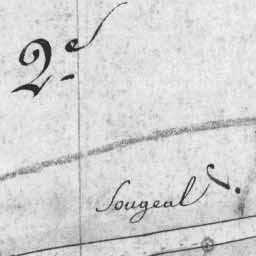 2.e
Sougeal